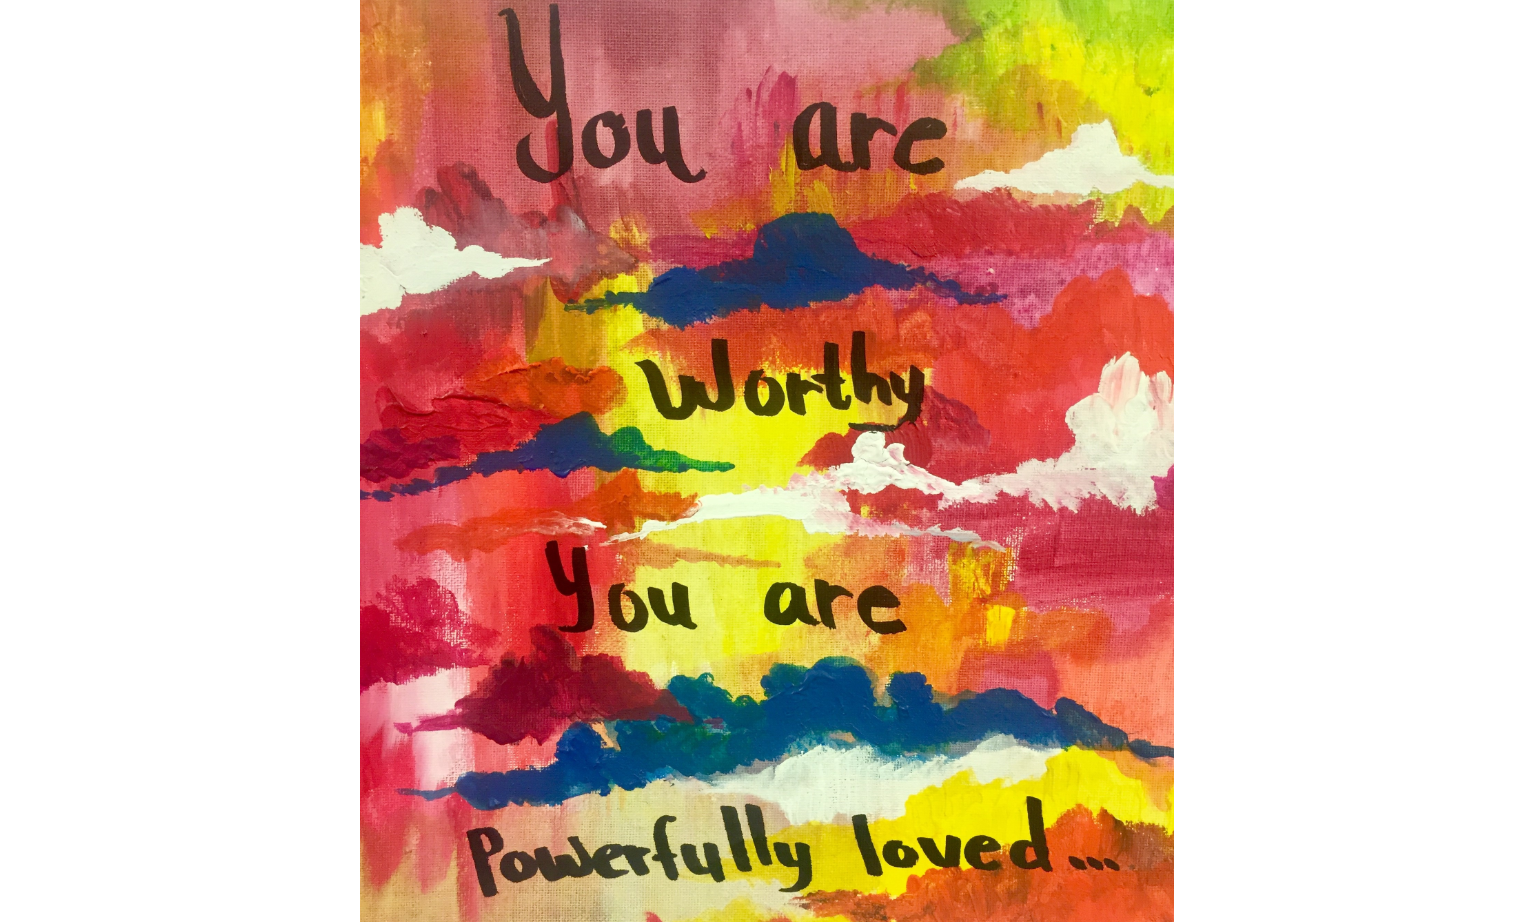 You are
Worthy
You are
Powerfully loved...